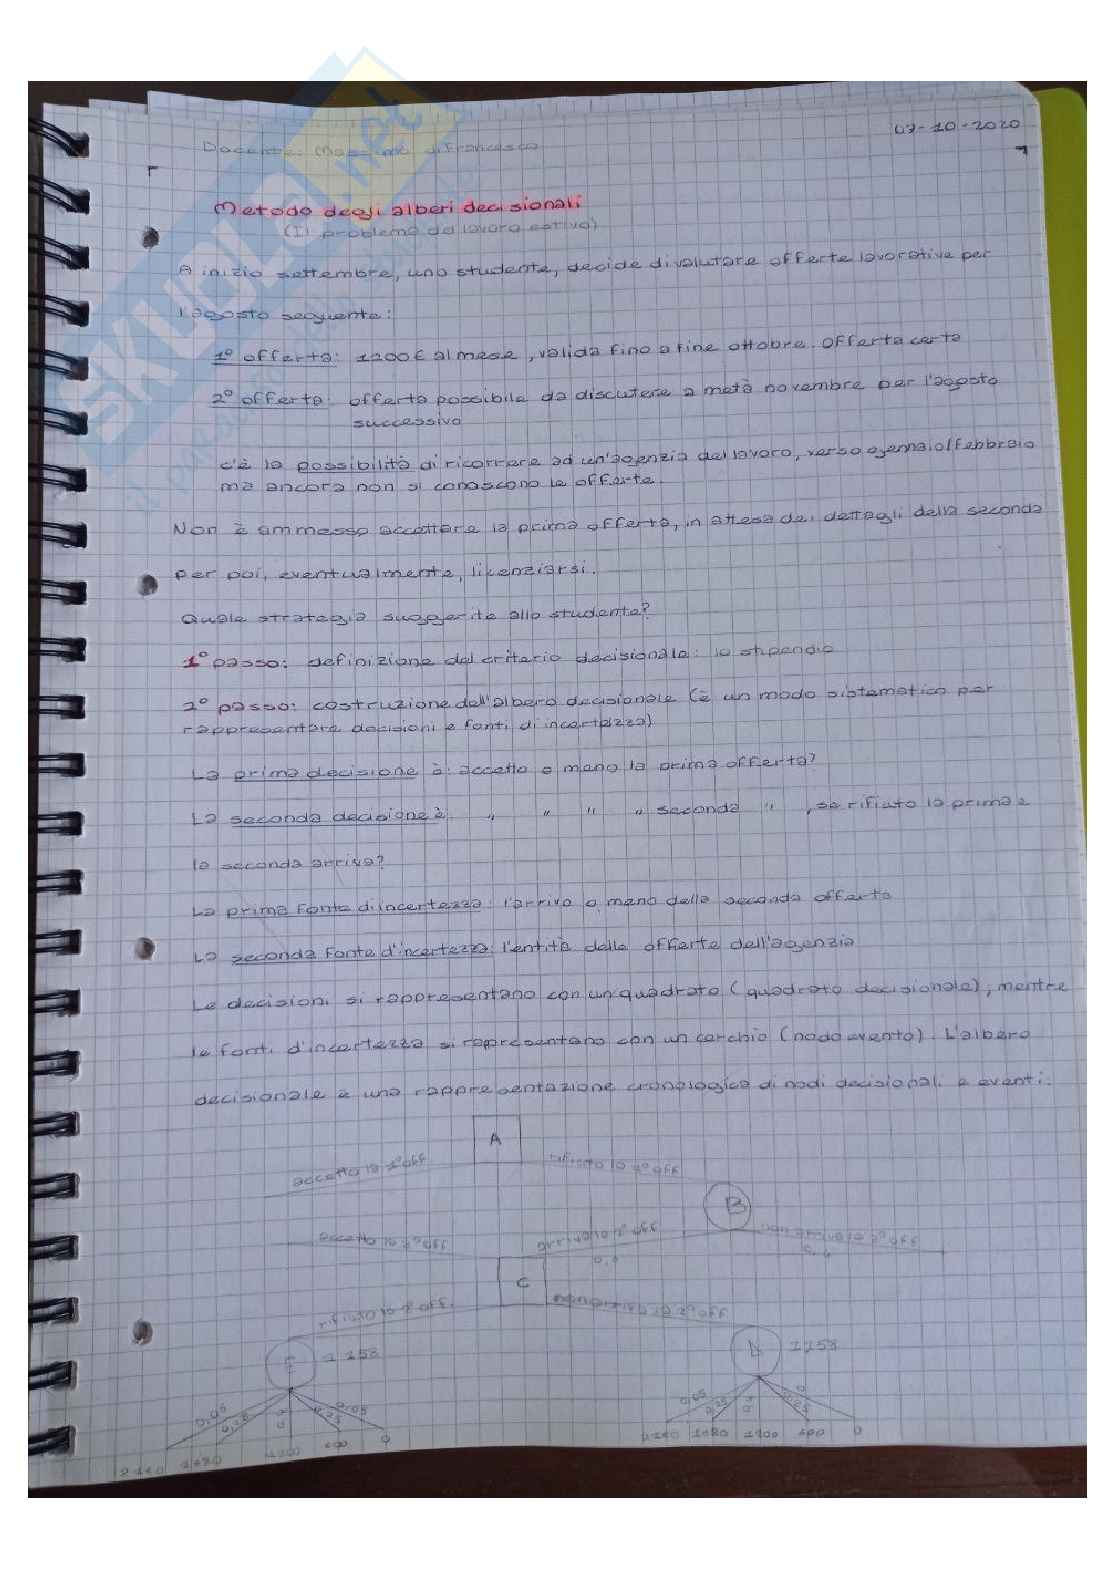 07-10-2020
Docente: Massimo di Francesco
Metodo degli alberi decisionali
(Il problema del lavoro estivo)
A inizio settembre, uno studente, decide di valutare offerte lavorative per
l'agosto seguente:
1° offerta: 1200€ al mese, valida fino a fine ottobre. Offerta certa
2° offerta: offerta possibile da discutere a metà novembre per l'agosto
successivo
c'è la possibilità di ricorrere ad un'agenzia del lavoro, verso gennaio/febbraio
ma ancora non si conoscono le offerte.
Non è ammesso accettare la prima offerta, in attesa dei dettagli della seconda
per poi, eventualmente, licenziarsi.
Quale strategia suggerite allo studente?
1° passo: definizione del criterio decisionale: lo stipendio
2° passo: costruzione dell'albero decisionale (è un modo sistematico per
rappresentare decisioni e fonti di incertezza)
La prima decisione è: accetto o meno la prima offerta?
La seconda decisione è: " " " " seconda " , se rifiuto la prima e
la seconda arriva?
La prima fonte di incertezza: l'arrivo o meno della seconda offerta
La seconda fonte d'incertezza: l'entità delle offerte dell'agenzia
Le decisioni si rappresentano con un quadrato (quadrato decisionale), mentre
le fonti d'incertezza si rapresentano con un cerchio (nodo evento). L'albero
decisionale è una rappresentazione cronologica di nodi decisionali e eventi.
A
accetto la 1° off
rifiuto la 1° off
B
accetto la 2° off
arriva la 2° off
non arriva la 2° off
0,6
0,4
C
rifiuto la 2° off
la 2° off
1158
D 1158
0,05 0,25 0,4 0,25 0,05
0,05 0,25 0,4 0,25 0
2140 1680 1200 600 0
2140 1680 1200 600 0